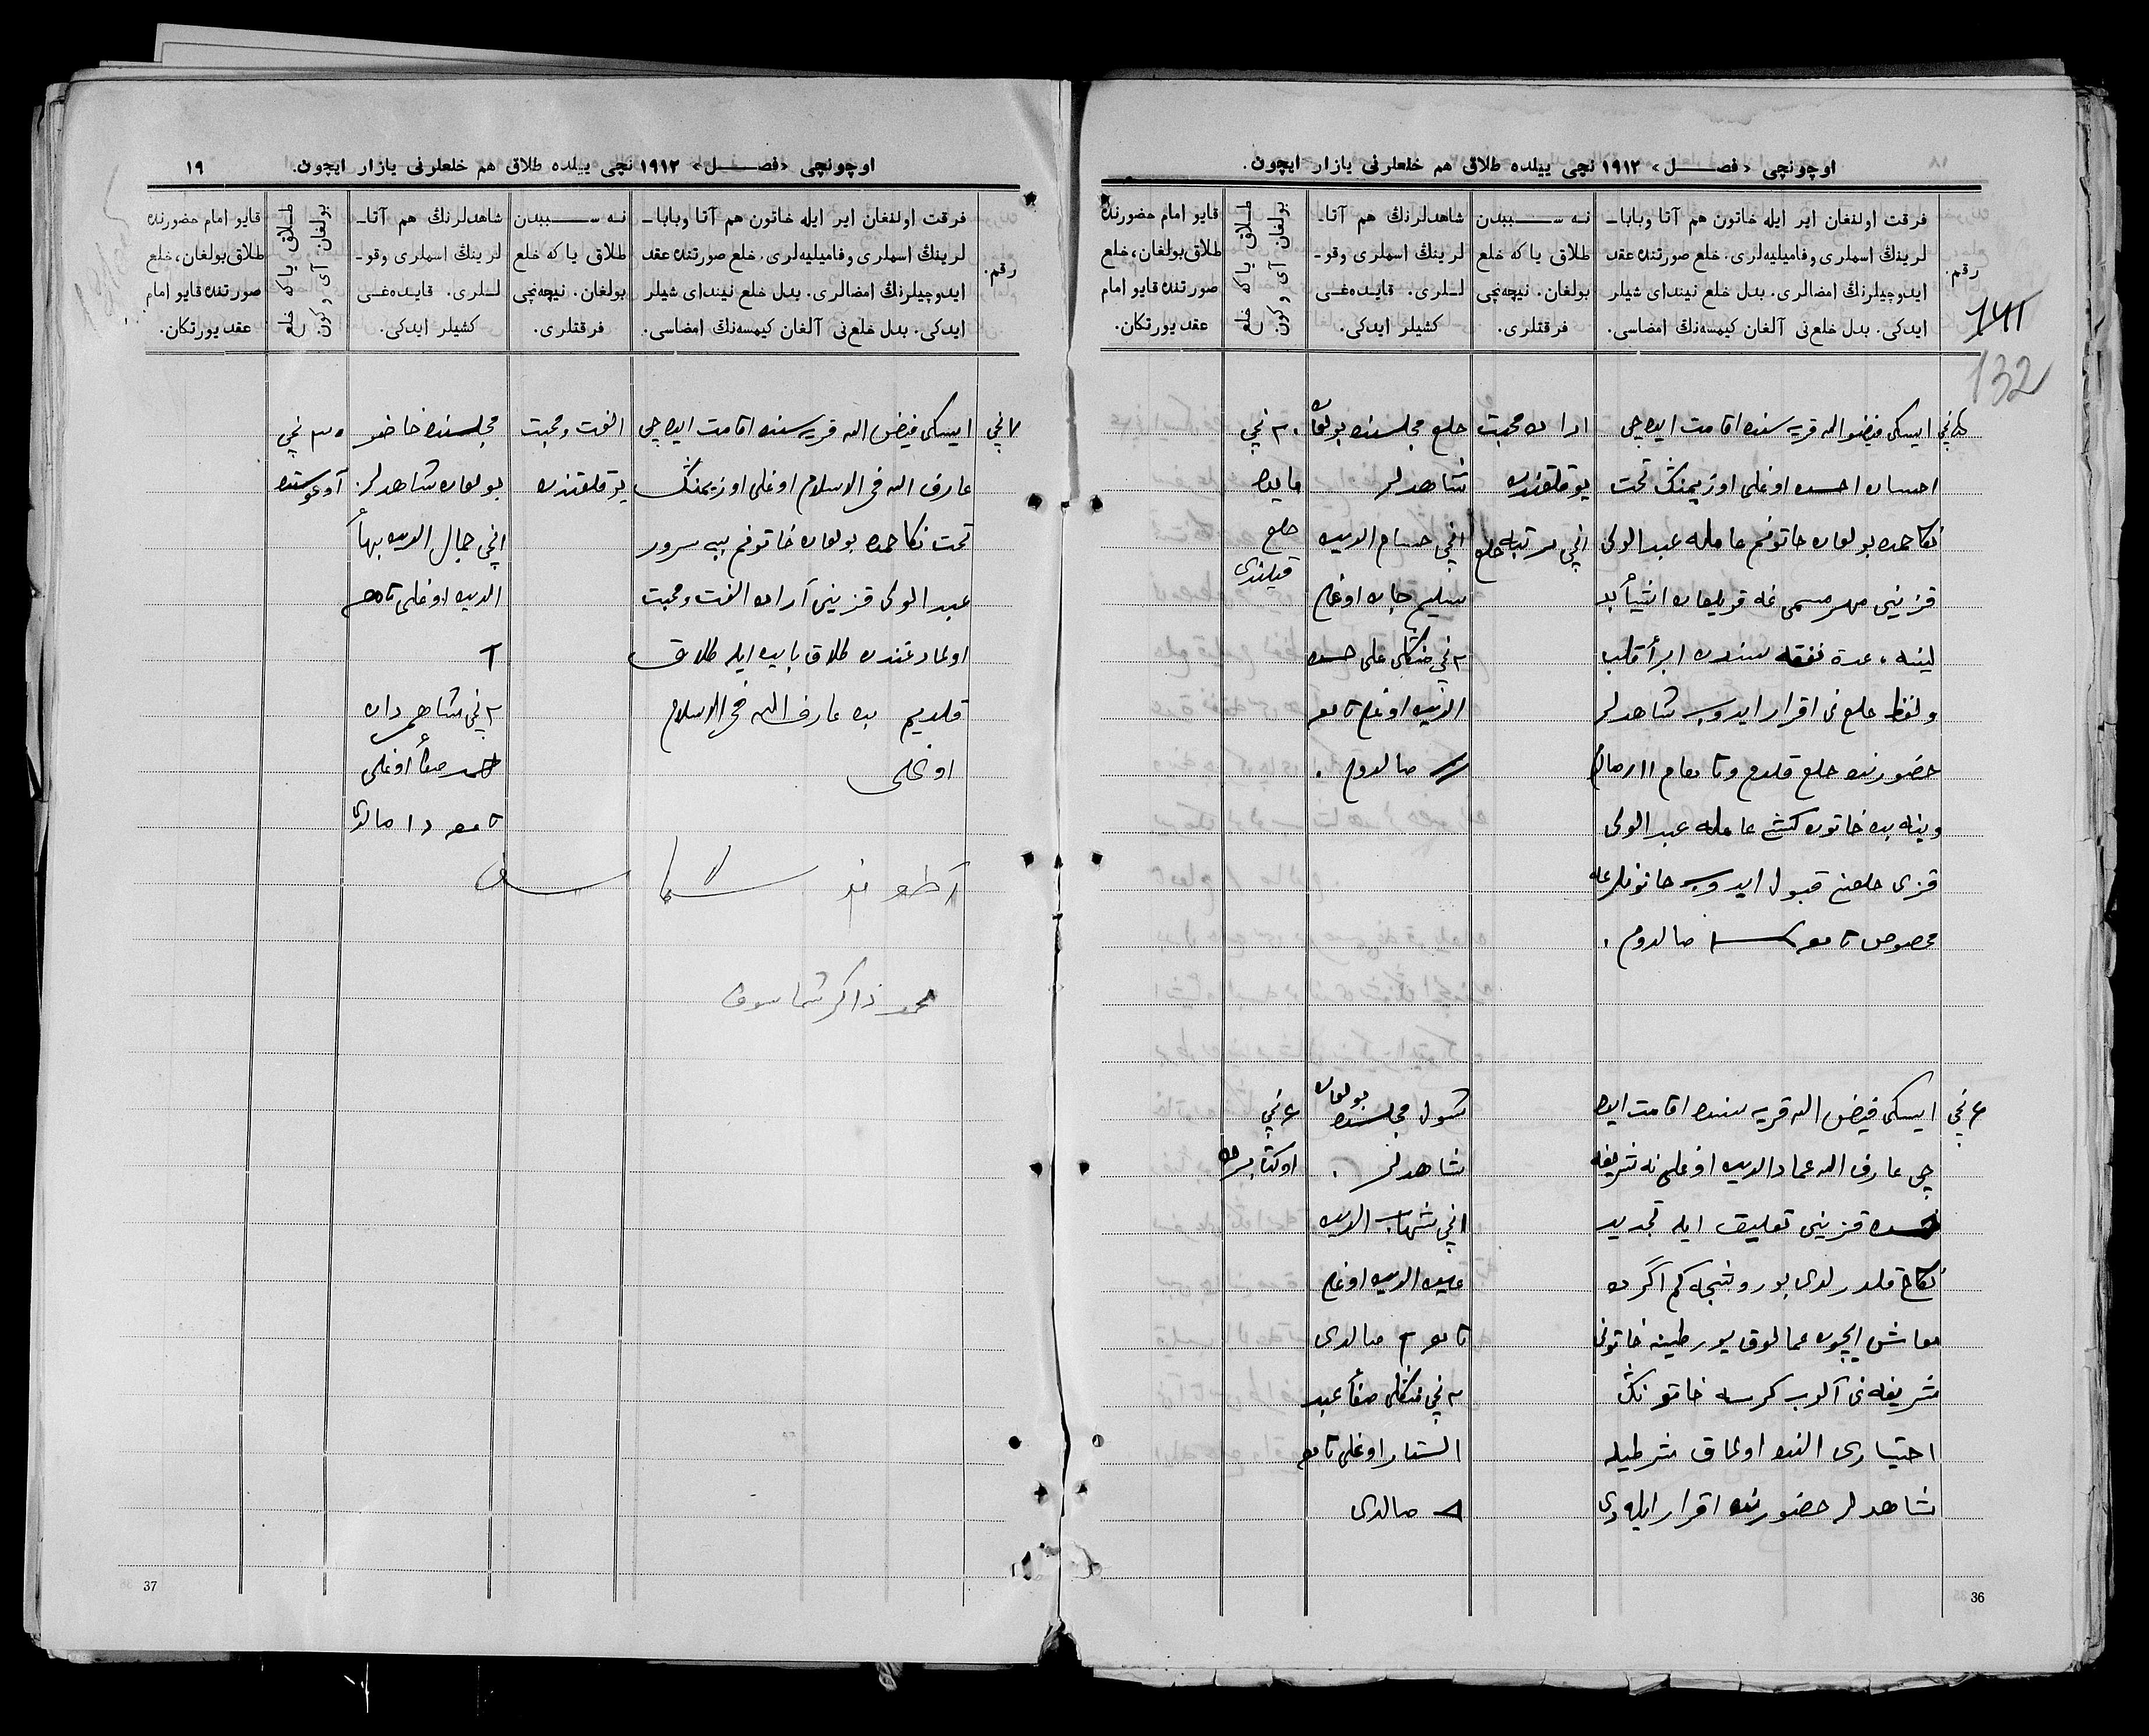 اوچونچی «فصل» ١٩١٢ نچی ییلده طلاق هم خلعلرنی یازار ایچون.
رقم.
فرقت اولنغان ایر ایله خاتون هم آتا وبابا-
لرینڭ اسملری وفامیلیه‌لری. خلع صورتنده عقد
ایدوچیلرنڭ امضالری. بدل خلع نیندای شیلر
ایدکی. بدل خلع‌نی آلغان کیمسه‌نڭ امضاسی.
نه سببدن
طلاق یا که خلع
بولغان. نیچه‌نچی
فرقتلری.
شاهدلرنڭ هم آتا-
لرینڭ اسملری وقو-
للری. قایده‌غی
کشیلر ایدکی.
طلاق یا که خلع
بولغان آی و کون
قایو امام حضورنده
طلاق بولغان، خلع
صورتنده قایو امام
عقد یورتکان.
141
132
ایسکی فیض الله قریه سنده اقامت ایده‌چی
احسان احسن اوغلی اوزیمنڭ تحت
نکاحمده بولغان خاتونم عامله عبد الولی
قزینی مهر مسمی غه قویلغان اشیأ بد
لینه، عدة نفقه سندن ابرأ قلب
ولفظ خلع نی اقرار ایدوب شاهدلر
حضورنده خلع قلدم وتامغام صالدم
وینه بن خاتون کشی عامله عبد الولی
قزی خلعنی قبول ایدوب خاتونلرغه
مخصوص تامغا صالدوم.
ارا ده محبت
یوقلقندن
انچی مرتبه خلع
خلع مجلسنده بولغان
شاهدلر
انچی حسام الدین
سلیم جان اوغلی
٢ نچی منکلی علی حسن
الدین اوغلی تامغا
صالدوم.
٢٠ نچی
مایده
خلع
قیلندی
٦ نچی
ایسکی فیض الله قریه سنده اقامت ایده
چی عارف الله عماد الدین اوغلی نه شریفه
حسن قزینی تعلیق ایله تجدید
نکاح قلدرلدی بو روشچه کم اگر ده
معاش ایچون عمالوق یورطینه خاتونی
شریفه نی آلوب کرسه خاتوننڭ
اختیاری النده اولماق شرطیله
شاهدلر حضورنده اقرار ایله دی
شول مجلسده بولغان
شاهدلر.
انچی شهاب الدین
عین الدین اوغلی
تامغا صالدی
٢ نچی منکلی صفأ عبد
الستار اوغلی تامغا
صالدی
٦ نچی
اوکتابرده
36
اوچونچی «فصل» ١٩١٢ نچی ییلده طلاق هم خلعلرنی یازار ایچون.
١٩
رقم.
فرقت اولنغان ایر ایله خاتون هم آتا وبابا-
لرینڭ اسملری وفامیلیه‌لری. خلع صورتنده عقد
ایدوچیلرنڭ امضالری. بدل خلع نیندای شیلر
ایدکی. بدل خلع‌نی آلغان کیمسه‌نڭ امضاسی.
نه سببدن
طلاق یا که خلع
بولغان. نیچه‌نچی
فرقتلری.
شاهدلرنڭ هم آتا-
لرینڭ اسملری وقو-
للری. قایده‌غی
کشیلر ایدکی.
طلاق یا که خلع
بولغان آی و کون
قایو امام حضورنده
طلاق بولغان، خلع
صورتنده قایو امام
عقد یورتکان.
٧ نچی
ایسکی فیض الله قریه سنده اقامت ایده‌چی
عارف الله فخر الاسلام اوغلی اوزیمنڭ
تحت نکاحمده بولغان خاتونم بیبی سرور
عبد الولی قزینی آراده الفت ومحبت
اولمادغندن طلاق باین ایله طلاق
قلدیم بن عارف الله فخر الاسلام
اوغلی
الفت ومحبت
یوقلقندن
مجلسنده حاضر
بولغان شاهدلر:
انچی جمال الدین بهأ
الدین اوغلی تامغا
٢ نچی شاهمردان
صفأ اوغلی
تامغا صالدی
٣٠ نچی
آوغوستده
محمد ذاکر شماسوف
37